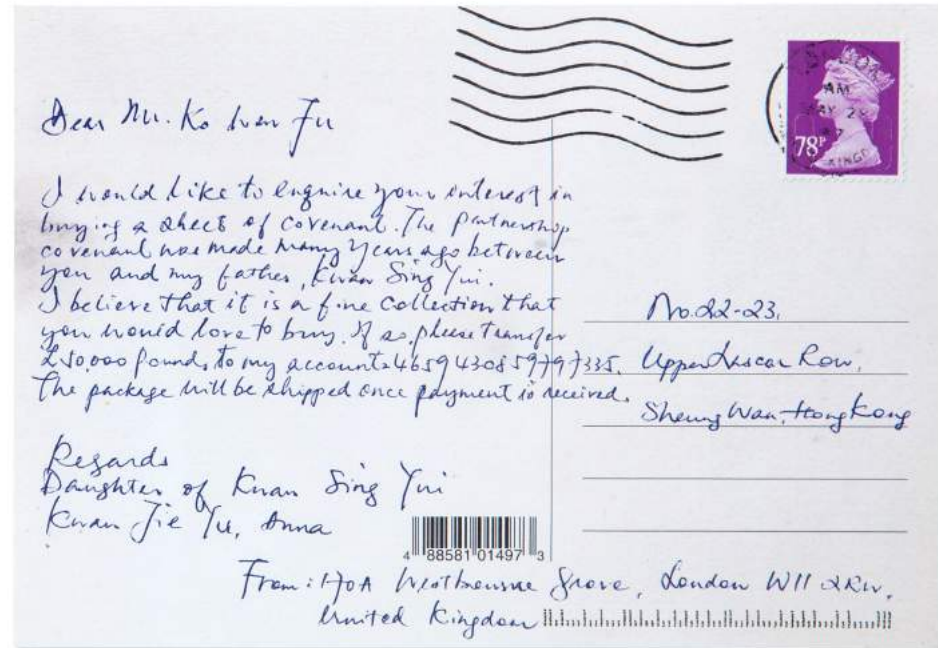 Dear Mr. Ko Wan Fu
I would like to enquire your interest in
buying a sheet of covenant. The partnership
covenant was made many years ago between
you and my father, Kwan Sing Yui.
I believe that it is a fine collection that
you would love to buy. If so, please transfer
£50,000 pounds to my account: 4659430859797335.
The package will be shipped once payment is received.
Regards
Daughter of Kwan Sing Yui
Kwan Jie Yu, Anna
78P
AM
MAY 28
No. 22-23,
Upper Lascar Row,
Sheung Wan, Hong Kong
4 88581 01497 3
From: 170A Westbourne Grove, London W11 2RW,
United Kingdom